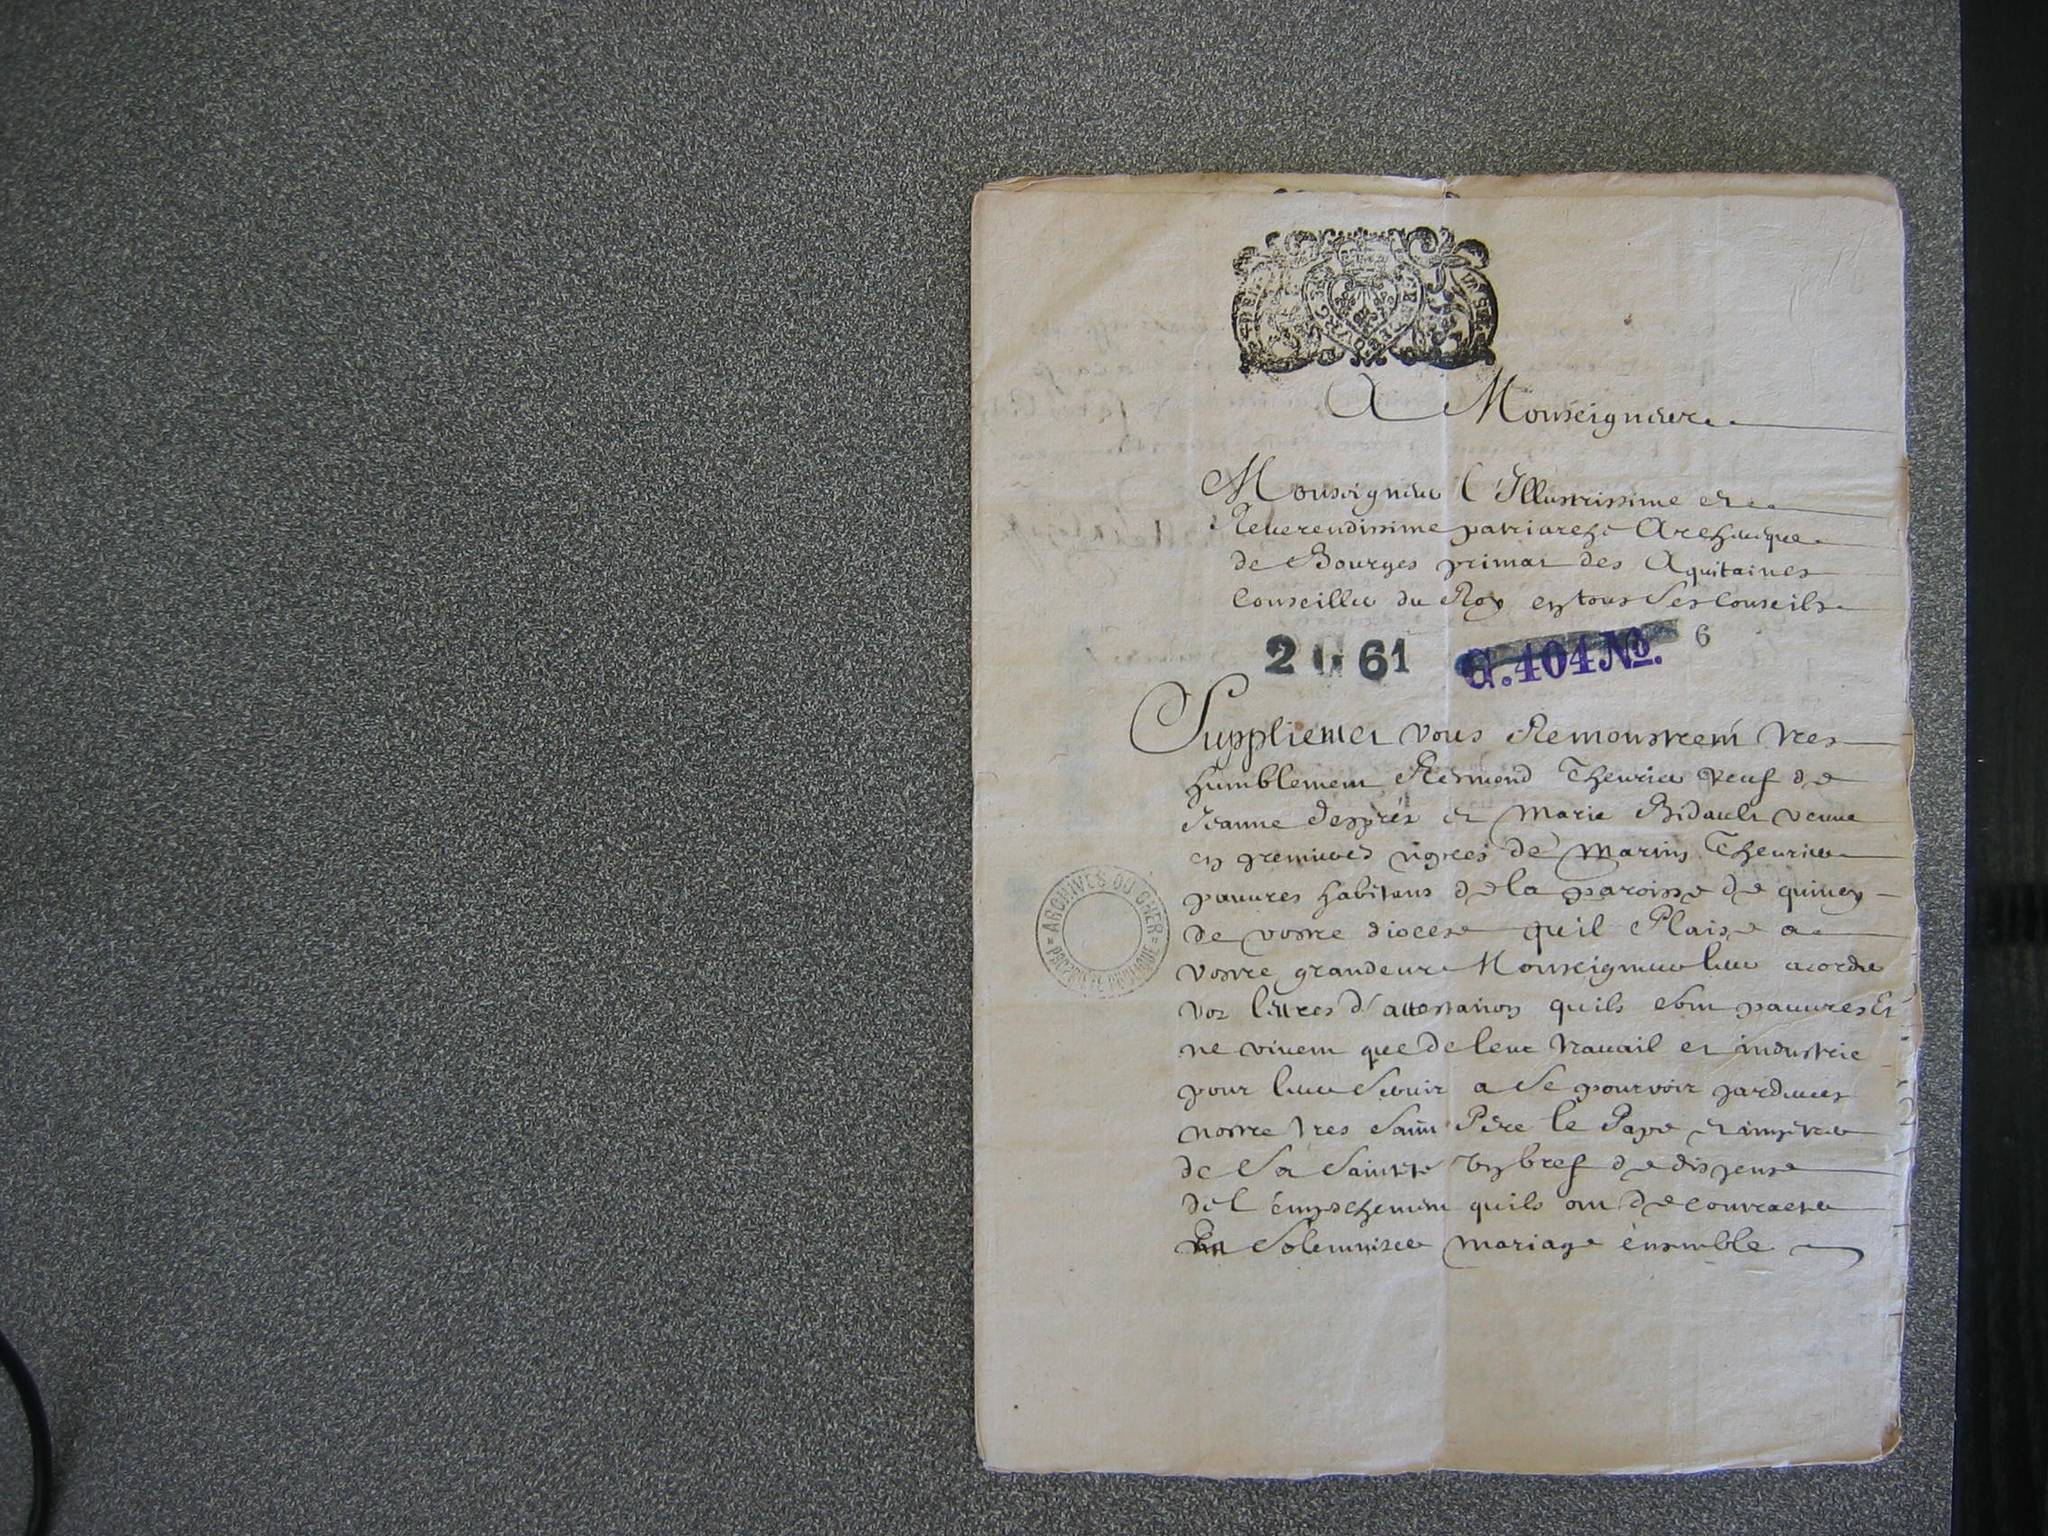 A Monseigneur
Monseigneur l'Illustrissime et
Reverendissime patriarche Archeuêque
de Bourges primat des Aquitaines
Conseiller du Roy en tous Ses Conseils
2 G 61 G.404 No. 6
Supplient et vous Remonstrent tres
humblement Theurier veuf de
Jeanne desprès et Marie Bidault veuue
en premieres nopces de Martin Theurier
pauures habitans de la paroisse de quincy
de vostre diocese qu'il Plaise a
vostre grandeur Monseigneur leur acorder
vos lettres d'attestation quils sont pauures Et
ne viuent que de leur trauail et industrie
pour leur seruir a se pourvoir pardeuers
nostre tres saint Père le Pape et impetrer
de Sa Sainteté vn bref de dispense
de l'émpechement quils ont de contracter
Solemniser mariage énsemble
ARCHIVES DU CHER
PROPRIÉTÉ PUBLIQUE